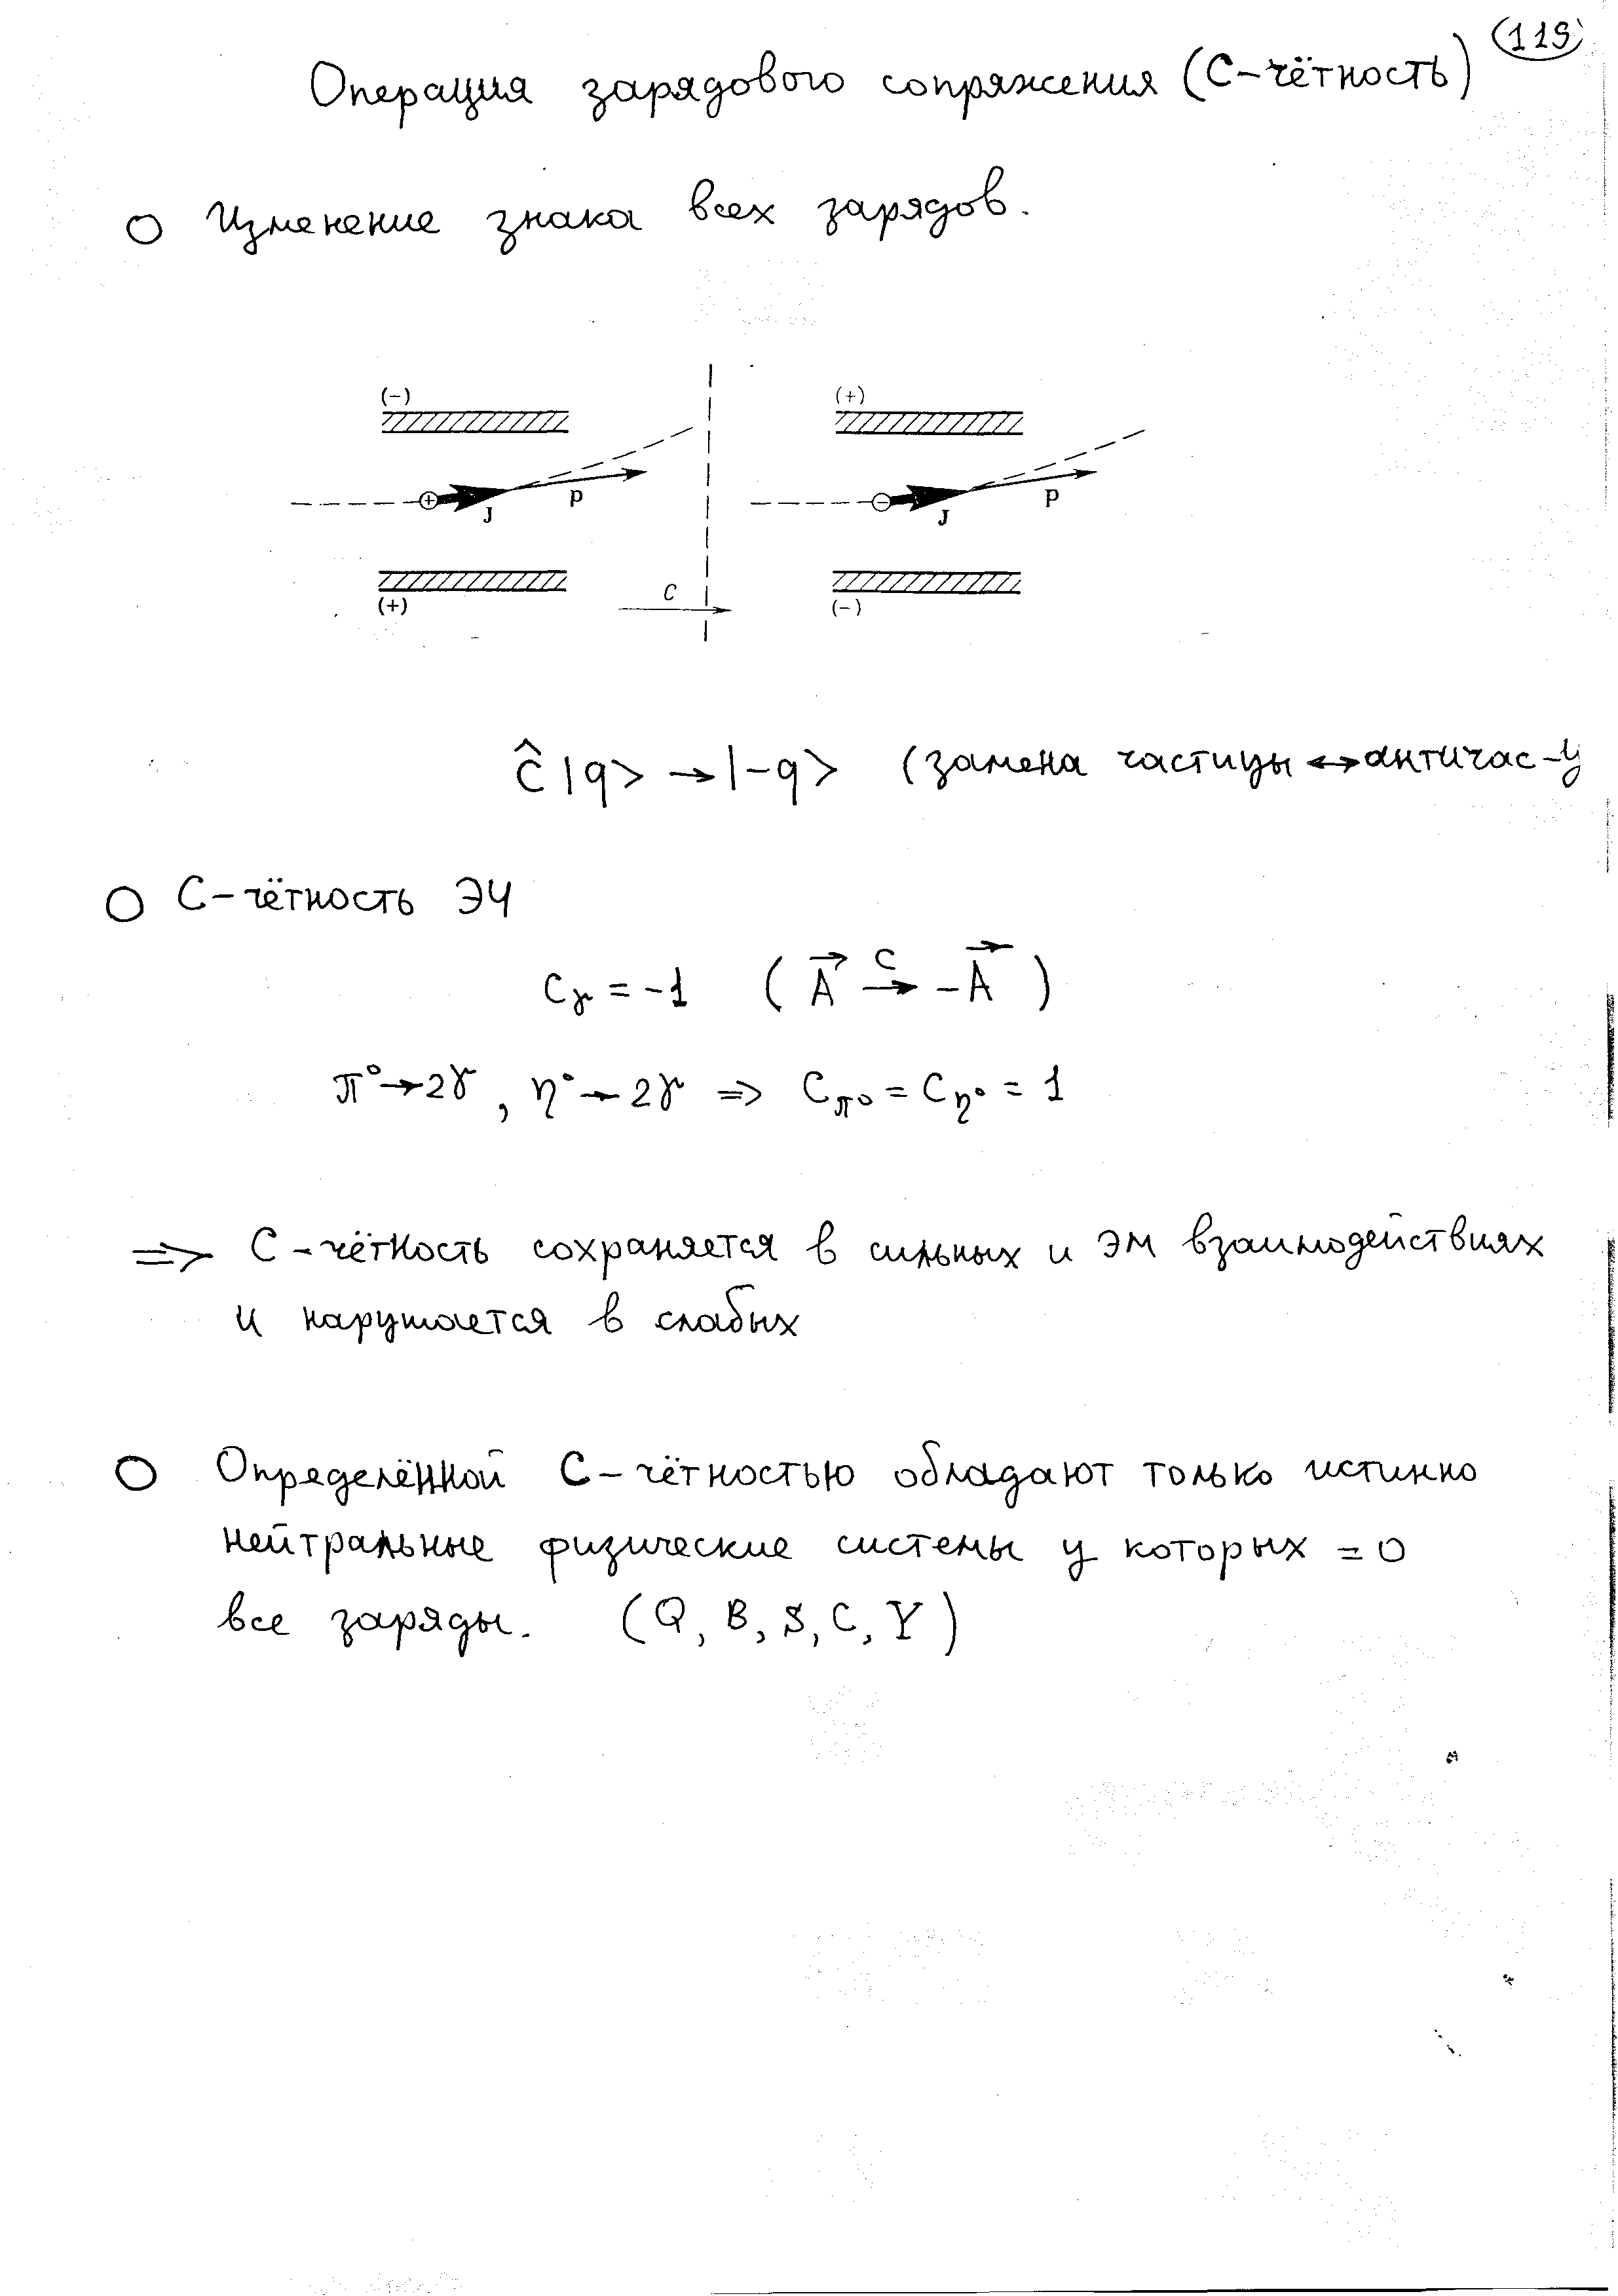 119
Операция зарядового сопряжения (С-чётность)
Изменение знака всех зарядов.
(-) (+)
J p J p
(+) C (-)
Ĉ|q> → |-q> (замена частицы ↔ античас-ц
С-чётность ЭЧ
Cγ = -1 (A⃗ →ᶜ -A⃗)
π° → 2γ, η° → 2γ => Cπ° = Cη° = 1
=> С-чётность сохраняется в сильных и ЭМ взаимодействиях
и нарушается в слабых
Определённой С-чётностью обладают только истинно
нейтральные физические системы у которых = 0
все заряды. (Q, B, S, C, Y)